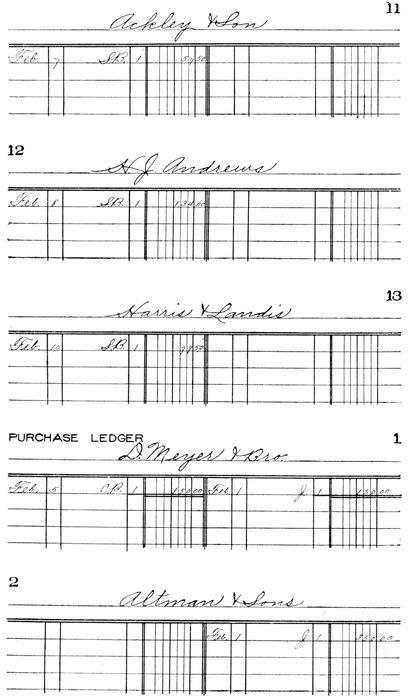 11
Ackley & Son
Feb. 7 S.B. 1 57 50
12
H. J. Andrews
Feb. 8 S.B. 1 134 00
13
Harris & Landis
Feb. 10 S.B. 1 77 50
PURCHASE LEDGER 1
D. Meyer & Bro.
Feb. 5 C.B. 1 150 00 Feb. 1 J 1 150 00
2
Altman & Sons
Feb. 1 J 1 350 00